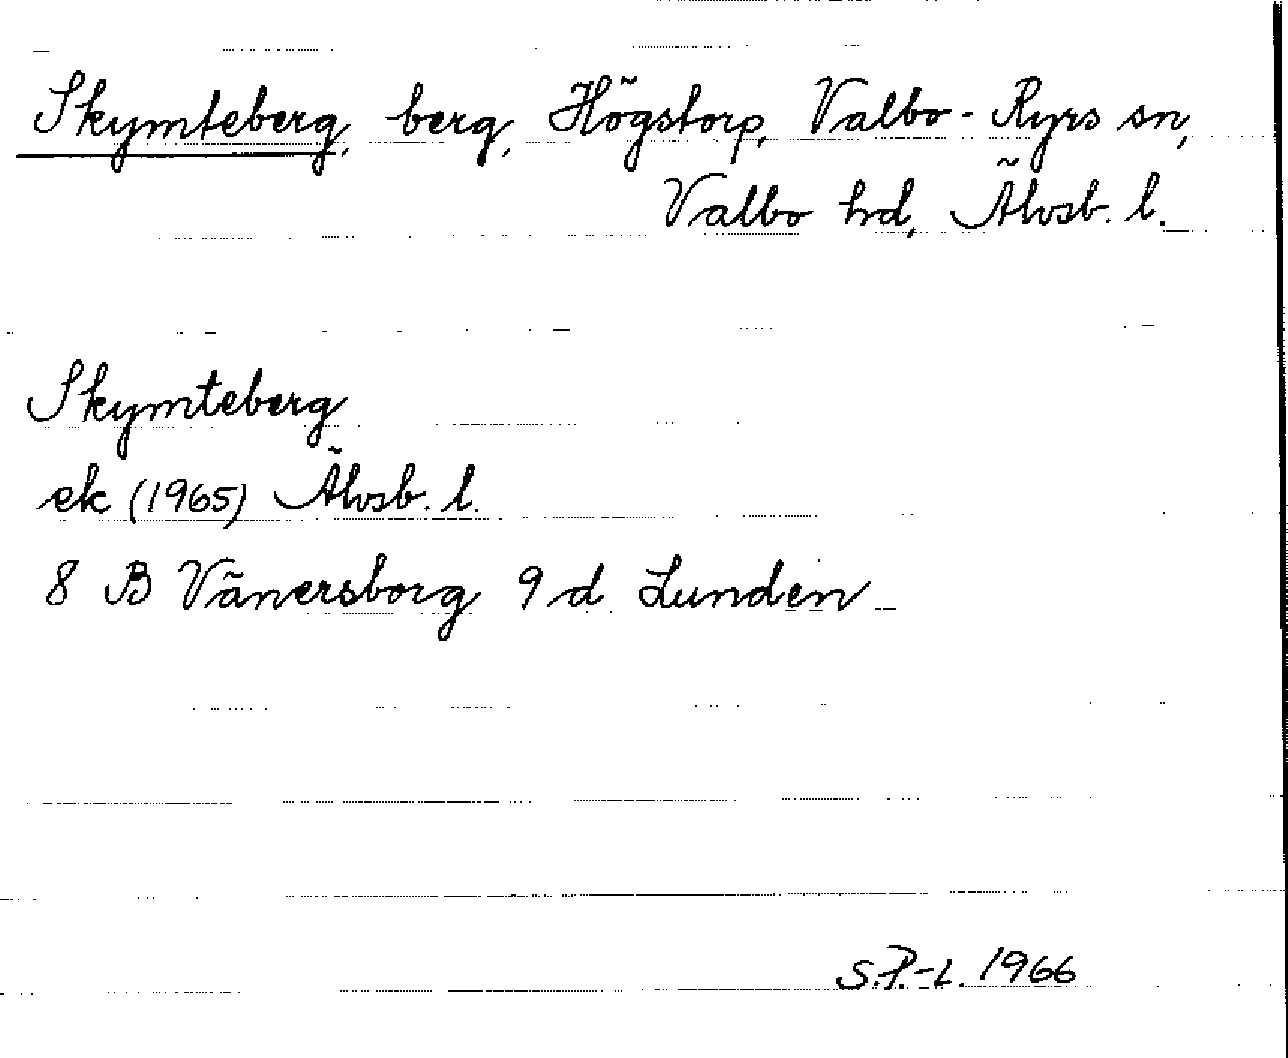 Skymteberg, berg, Högstorp, Valbo-Ryrs sn,
Valbo hd, Älvsb. l.
Skymteberg
ek (1965) Älvsb. l.
8 B Vänersborg 9 d Lunden
S.P.-L. 1966